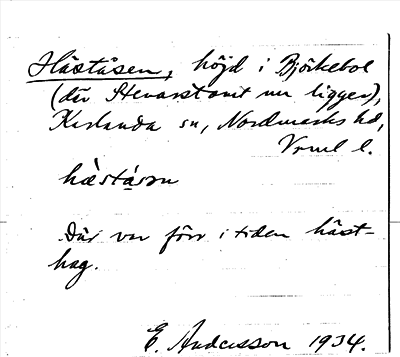 Häståsen, höjd i Björkebol
(där Stenarstomt nu ligger),
Karlanda sn, Nordmarks hd,
Vrml l.
hæståsən
Där var förr i tiden häst-
hag.
E. Andersson 1934.